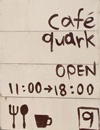 café
quark
OPEN
11:00→18:00
q